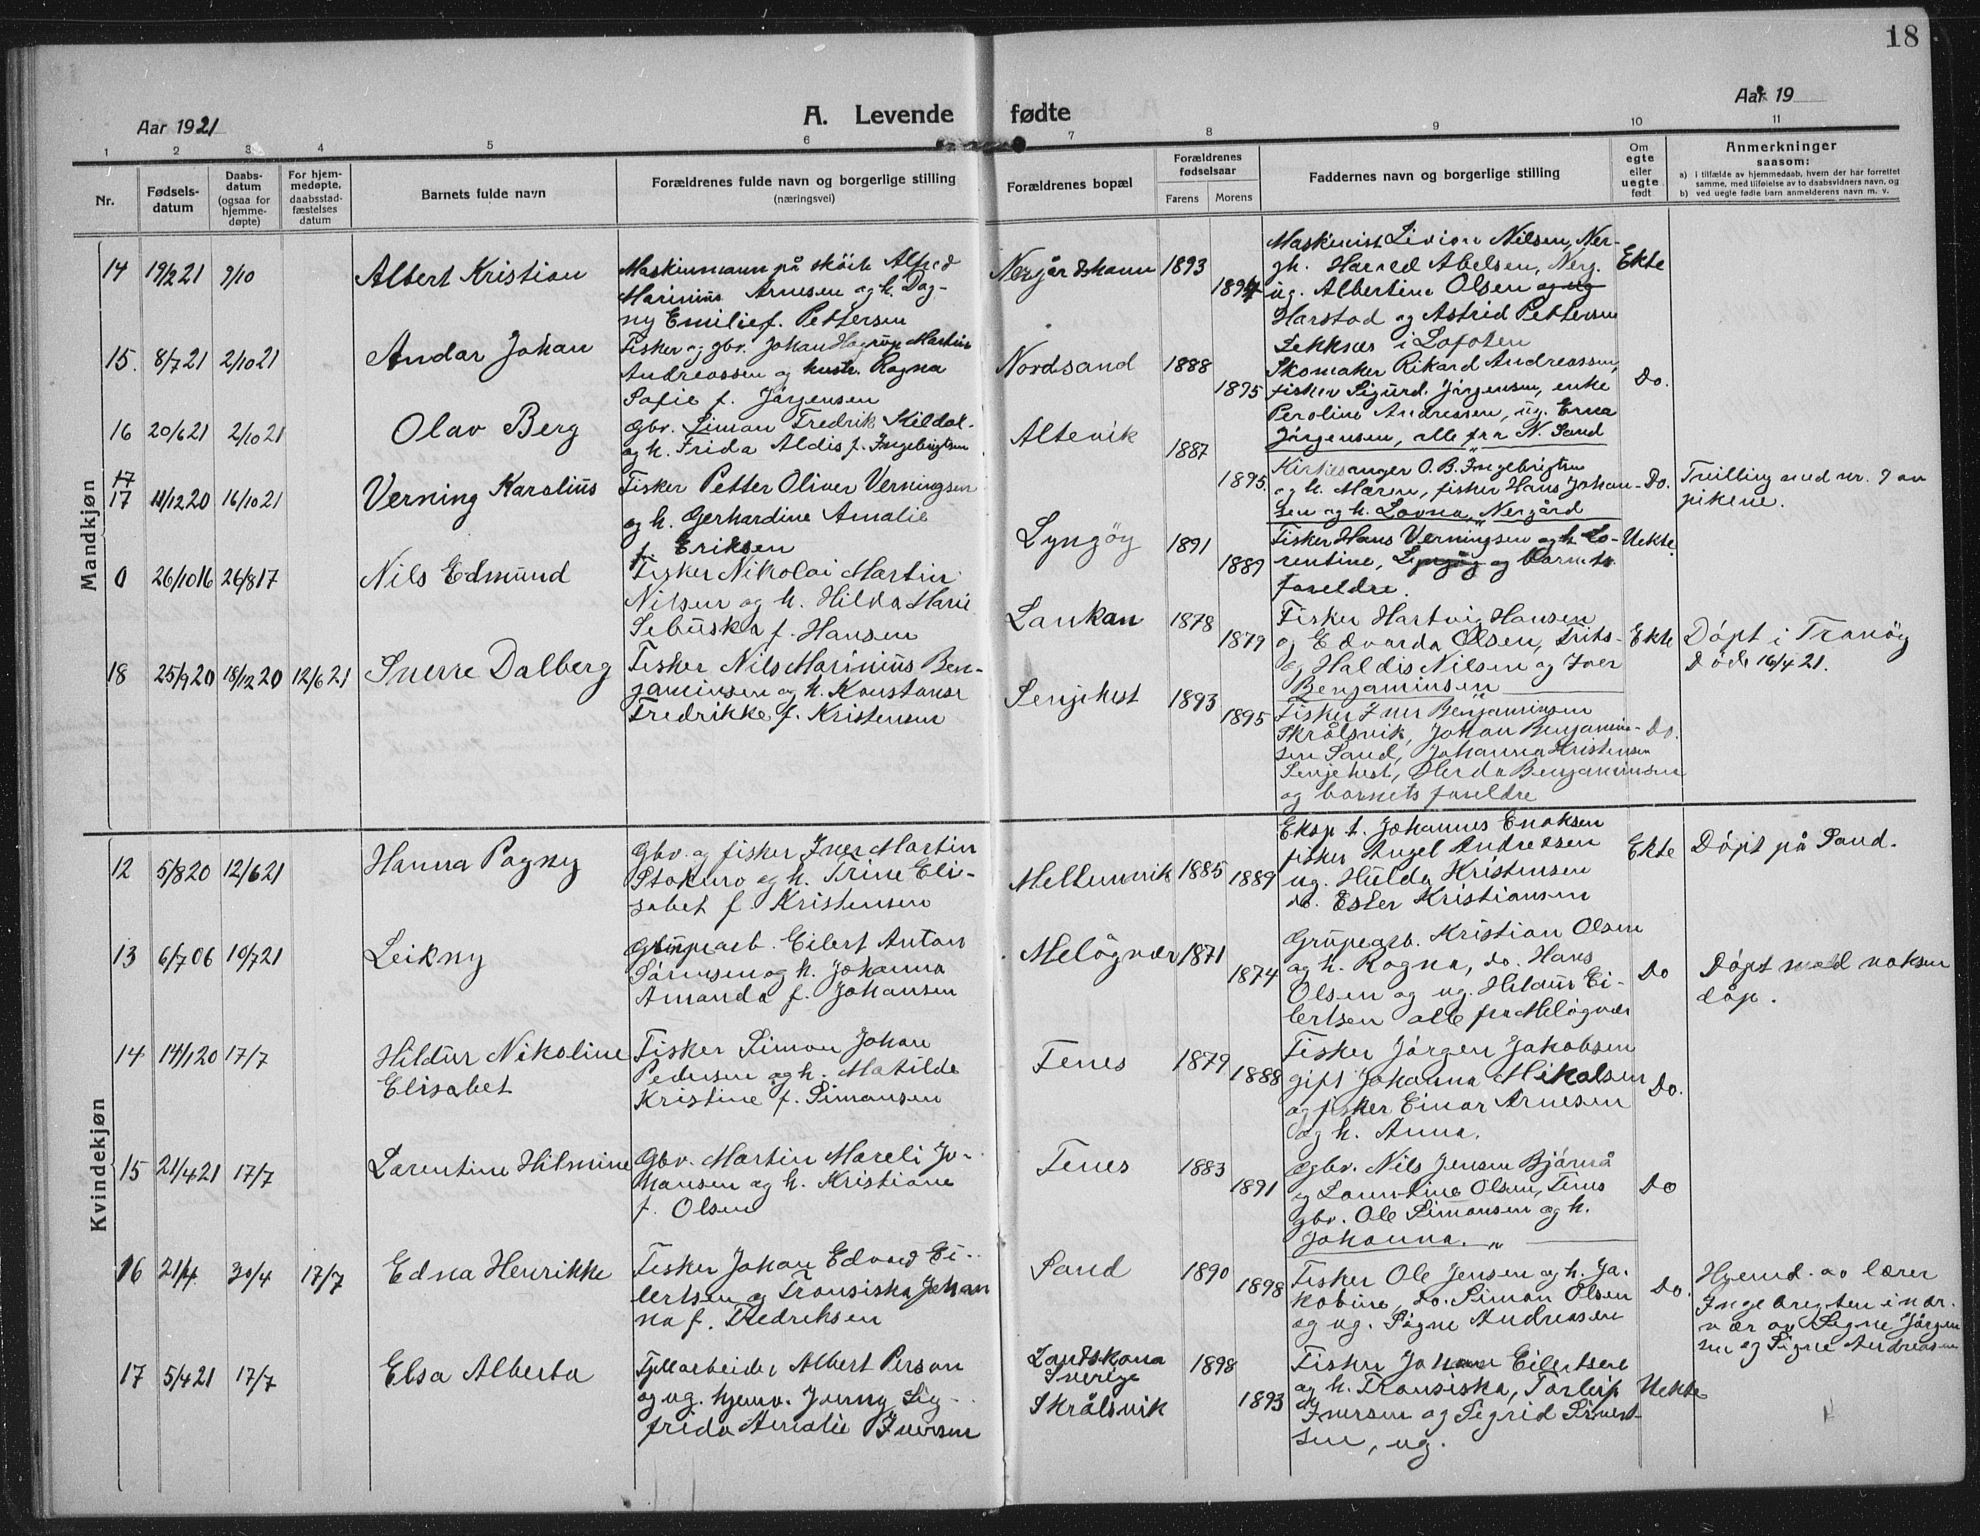 18
Aar 1921
A. Levende fødte
Aar 19
1 2 3 4 5 6 7 8 9 10 11
Nr.
Fødsels-
datum
Daabs-
datum
(ogsaa for
hjemme-
døpte)
For hjem-
medøpte,
daabsstad-
fæstelses
datum
Barnets fulde navn
Forældrenes fulde navn og borgerlige stilling
(næringsvei)
Forældrenes bopæl
Forældrenes
fødselsaar
Farens Morens
Faddernes navn og borgerlige stilling
Om
egte
eller
uegte
født
Anmerkninger
saasom:
a) i tilfælde av hjemmedaab, hvem der har forrettet
samme, med tilføielse av to daabsvidners navn, og
b) ved uegte fødte barn anmelderens navn m. v.
Mandkjøn
14 19/2 21 9/10 Albert Kristian
Maskinmann på skøite Alfred
Marinius Arnesen og h. Dag-
ny Emilie f. Pettersen
Nergårdshamn 1893 1894
Maskinist Livion Nilsen, Ner-
gh. Harald Abelsen, Nerg.
ug. Albertine Olsen og ug
Harstad og Astrid Pettersen
i Lofoten
Ekte
15. 8/7 21 2/10 21 Andar Johan
Fisker og gbr. Johan Hagrup Martin
Andreassen og hustr. Ragna
Sofie f. Jørgensen
Nordsand 1888 1895
Skomaker Rikard Andreassen,
fisker Sigurd Jørgensen, enke
Peroline Andreassen, ug. Erna
Jørgensen, alle fra N. Sand
Do.
16 20/6 21 2/10 21 Olav Berg
Gbr. Simon Fredrik Kildal-
og h. Frida Aldis f. Ingebrigtsen
Altevik 1887 1895.
Kirkesanger O. B. Ingebrigtsen
og h. Maren, fisker Hans Johan-
sen og h. Lovna, Nergård
Do.
17
17 11/12 20 16/10 21 Verning Karolius
Fisker Petter Oliver Verningsen
og h. Gerhardine Amalie
f. Eriksen
Lyngøy 1891 1889
Fisker Hans Verningsen og h. Lo-
rentine, Lyngøy og barnets
foreldre.
Uekte.
Tvilling med nr. 9 av
pikene.
0 26/10 16 26/8 17 Nils Edmund
Fisker Nikolai Martin
Nilsen og h. Hilda Marie
Sebuska f. Hansen
Lankan 1878 1879
Fisker Hartvig Hansen
og Edvarda Olsen,
og Haldis Nilsen og Iver
Benjaminsen
Ekte
Døpt i Tranøy
Døde 16/4 21.
18 25/9 20 18/12 20 12/6 21 Sverre Dalberg
Fisker Nils Marinius Ben-
jaminsen og h. Konstanse
Fredrikke f. Kristensen
Senjehest 1893 1895
Fisker Iver Benjaminsen
Skrålsvik, Johan Benjamin-
sen Sand, Johanna Kristensen
Senjehest, Herda Benjaminsen
og barnets foreldre
Do.
Kvindekjøn
12 5/8 20 12/6 21 Hanna Pagny
Gbr. og fisker Iver Martin
Stokmo og h. Trine Eli-
sabet f. Kristensen
Mellemvik 1885 1889
Eksp. t. Johannes Enoksen
fisker Angel Andreasen
ug. Hulda Kristensen
do. Ester Kristiansen
Ekte
Døpt på Sand.
13 6/7 06 10/7 21 Leikny
Grupearb. Eilert Anton
Sørensen og h. Johanna
Amanda f. Johansen
Meløyvær 1871 1874
Grupearb. Kristian Olsen
og h. Ragna, do. Hans
Olsen og ug. Hildur Ei-
lertsen alle fra Meløyvær
Do
Døpt med voksen
dåp.
14 14/1 20 17/7 Hildur Nikoline
Elisabet
Fisker Simon Johan
Pedersen og h. Matilde
Kristine f. Simonsen
Tenes 1879 1888
Fisker Jørgen Jakobsen
gift Johanna Mikalsen
og fisker Einar Arnesen
og h. Anna.
Do.
15 21/4 21 17/7 Lorentine Hilmine
Gbr. Martin Mareli Jo-
hansen og h. Kristiane
f. Olsen
Tenes 1883 1891
Gbr. Nils Jensen Bjørnå
og Laurentine Olsen, Tenes
gbr. Ole Simonsen og h.
Johanna. "
Do
16 21/4 30/4 17/7 Edna Henrikke
Fisker Johan Edvard Ei-
lertsen og Fransiska Johan
na f. Fredriksen
Sand 1890 1898
Fisker Ole Jensen og h. Ja-
kobine, do. Simon Olsen
og ug. Signe Andreasen
Do.
Hjemd. av lærer
Ingebrigtsen i nær-
vær av Signe Jørgen
sen og Signe Andreasen
17 5/4 21 17/7 Elsa Alberta
Fjellarbeider Albert Person
og ug. hjemv. Jenny Sig-
frida Amalie Iversen
Landskrona
Sverige
Skrålsvik
1898 1893
Fisker Johan Eilertsen
og h. Fransiska, Torleif
Iversen og Sigrid Sivert-
sen, ug.
Uekte